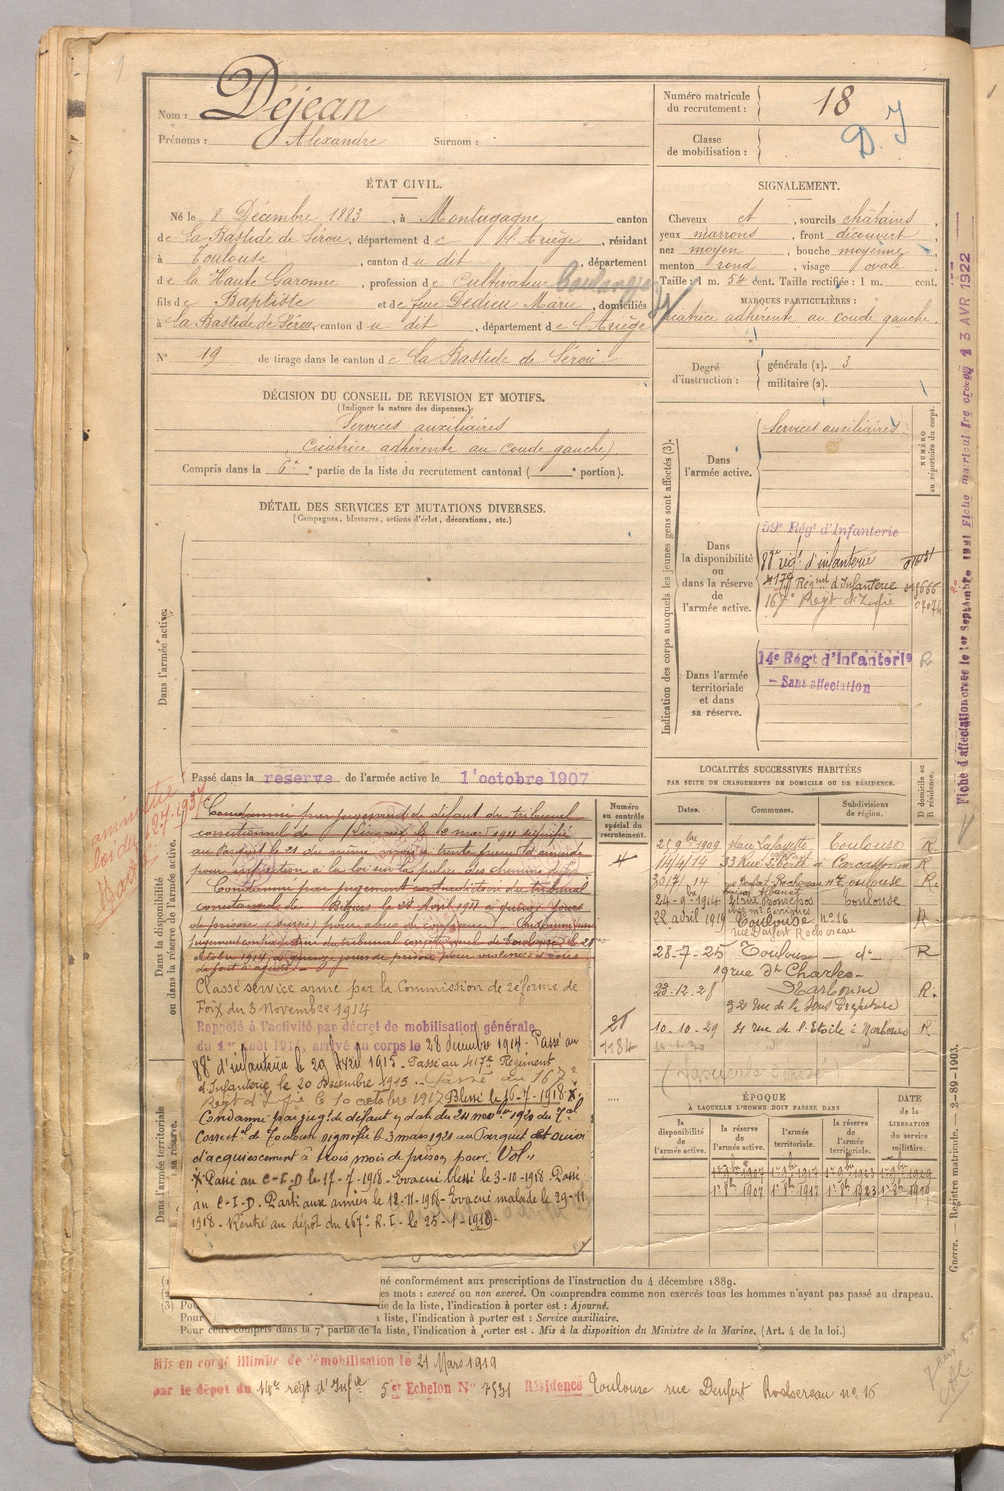 Nom : Déjean
Prénoms : Alexandre Surnom :
Numéro matricule du recrutement : 18
D. J
Classe de mobilisation :
ÉTAT CIVIL.
Né le 8 Décembre 1883, à Montagagne canton
de La Bastide de Sérou, département de l'Ariège, résidant
à Toulouse, canton du dit, département
de la Haute Garonne, profession de Cultivateur boulanger
fils de Baptiste et de feue Dedieu Marie, domiciliés
à La Bastide de Sérou, canton du dit, département de l'Ariège
N° 19 de tirage dans le canton de La Bastide de Sérou
SIGNALEMENT.
Cheveux et, sourcils châtains
yeux marrons, front découvert
nez moyen, bouche moyenne
menton rond, visage ovale
Taille : 1 m. 54 cent. Taille rectifiée : 1 m. cent.
MARQUES PARTICULIÈRES :
cicatrice adhérente au coude gauche.
Degré d'instruction :
générale (1). 3
militaire (2).
DÉCISION DU CONSEIL DE REVISION ET MOTIFS.
(Indiquer la nature des dispenses.)
Services auxiliaires
(cicatrice adhérente au coude gauche)
Compris dans la 6e partie de la liste du recrutement cantonal ( e portion).
DÉTAIL DES SERVICES ET MUTATIONS DIVERSES.
(Campagnes, blessures, actions d'éclat, décorations, etc.)
Dans l'armée active.
Indication des corps auxquels les jeunes gens sont affectés (3).
NUMÉRO au répertoire du corps.
Dans l'armée active.
Services auxiliaires.
Dans la disponibilité ou dans la réserve de l'armée active.
59e Rég' d'Infanterie
88e rég' d'infanterie
417e Régim' d'Infanterie 
167e Regt d'Infie
Dans l'armée territoriale et dans sa réserve.
14e Régt d'Infanterie R
- Sans affectation
Passé dans la reserve de l'armée active le 1' octobre 1907
Dans la disponibilité ou dans la réserve de l'armée active.
amnistié
loi du
Numéro au contrôle spécial du recrutement.
Condamné par jugement de défaut du tribunal
correctionnel de Béziers le
pour infraction à la loi sur la police des chemins de fer
Condamné par jugement contradictoire du tribunal
correctionnel de Béziers le 28 Avril 1911 à quinze jours
de prison (sursis) pour abus de confiance
jugement contradictoire du tribunal correctionnel de Toulouse le 21
octobre 1914, à quinze jours de prison pour violences et voies
de fait à agents
Classé service armé par la Commission de réforme de
Foix du 3 Novembre 1914
Rappelé à l'activité par décret de mobilisation générale
du 1er août 1914, arrivé au corps le 28 décembre 1914. Passé au
88e d'infanterie le 29 Avril 1915. Passé au 417e Régiment
d'Infanterie le 20 Décembre 1915. Passé au 167e
Regt d'Infie le 10 octobre 1917. Blessé le 16-7-1918 X.
Condamné par jugt de défaut en date du 24 nov 1920 du Tal
Correctel de Toulouse signifié le 3 mars 1921 au Parquet
d'acquiescement à trois mois de prison pour Vol.
X Passé au C-I-D le 17-7-1918. Evacué blessé le 3-10-1918. Passé
au C-I-D. Parti aux armées le 12-11-1918. Evacué malade le 29-11
1918. Rentré au dépôt du 167e R.I. le 25-1-1919.
21
1184
Dans l'armée territoriale et sa réserve.
LOCALITÉS SUCCESSIVES HABITÉES
PAR SUITE DE CHANGEMENTS DE DOMICILE OU DE RÉSIDENCE.
Dates. Communes. Subdivisions de région. D domicile ou R résidence.
25 9bre 1909 place Lafayette, Toulouse R
14/4/14 33 Rue Liberté à Carcassonne R
30/7/14 Toulouse R.
24-9-1914 Toulouse
22 avril 1919 Toulouse n° 16 R
rue Denfert Rochereau
28-7-25 Toulouse - do - R
19 rue St Charles
23-12-28 Narbonne R.
32 rue de la Sous Préfecture
10-10-29 21 rue de l'Etoile à Narbonne R
ÉPOQUE
À LAQUELLE L'HOMME DOIT PASSER DANS
la disponibilité de l'armée active. la réserve de l'armée active. l'armée territoriale. la réserve de l'armée territoriale.
DATE de la LIBÉRATION du service militaire.
1er 8bre 1907 1er 8bre 1917 1er 8bre 1923
né conformément aux prescriptions de l'instruction du 4 décembre 1889.
es mots : exercé ou non exercé. On comprendra comme non exercés tous les hommes n'ayant pas passé au drapeau.
(3) Pou ie de la liste, l'indication à porter est : Ajourné.
Pour a liste, l'indication à porter est : Service auxiliaire.
Pour ceux compris dans la 7e partie de la liste, l'indication à porter est : Mis à la disposition du Ministre de la Marine. (Art. 4 de la loi.)
Mis en congé illimité de démobilisation le 21 Mars 1919
par le dépôt du 14e régt d'Infie 5e Echelon N° 7531 Résidence Toulouse rue Denfert Rochereau n° 16
Guerre. — Registre matricule. — 2-89-1903.
Fiche d'affectation créée le 1er Septembre 1921 Fiche matricule créée 13 AVR 1922